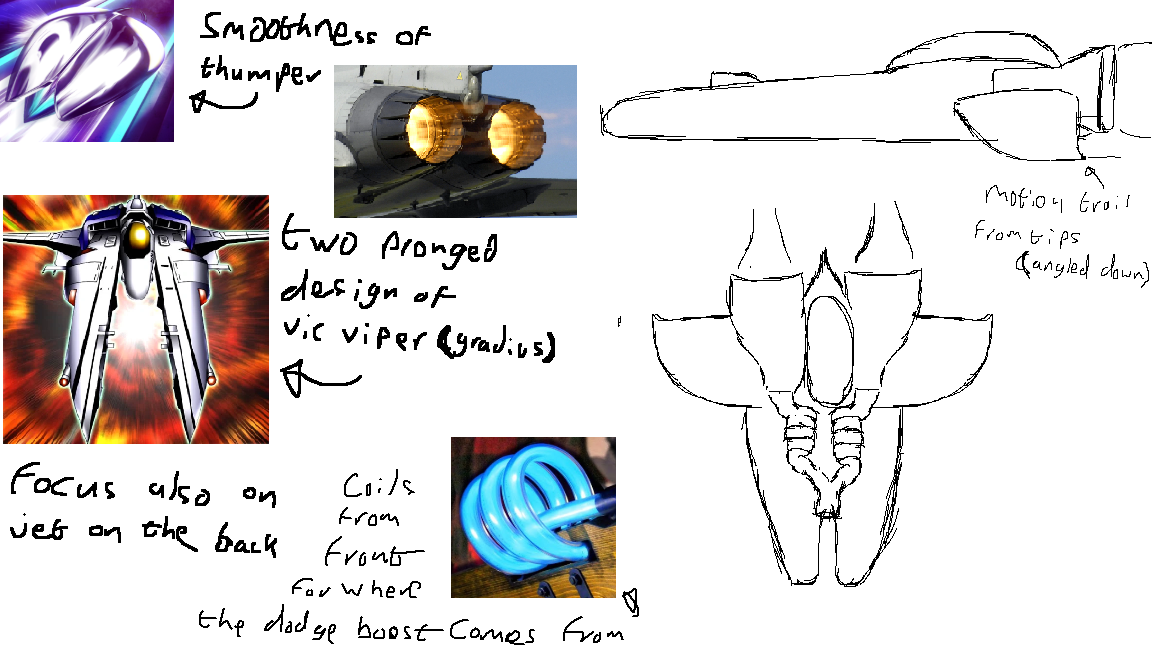 Smoothness of
thumper
two pronged
design of
vic viper (gradius)
Focus also on
jet on the back
Coils
from
front
for where
the dodge boost comes from
Motion trail
from tips
(angled down)